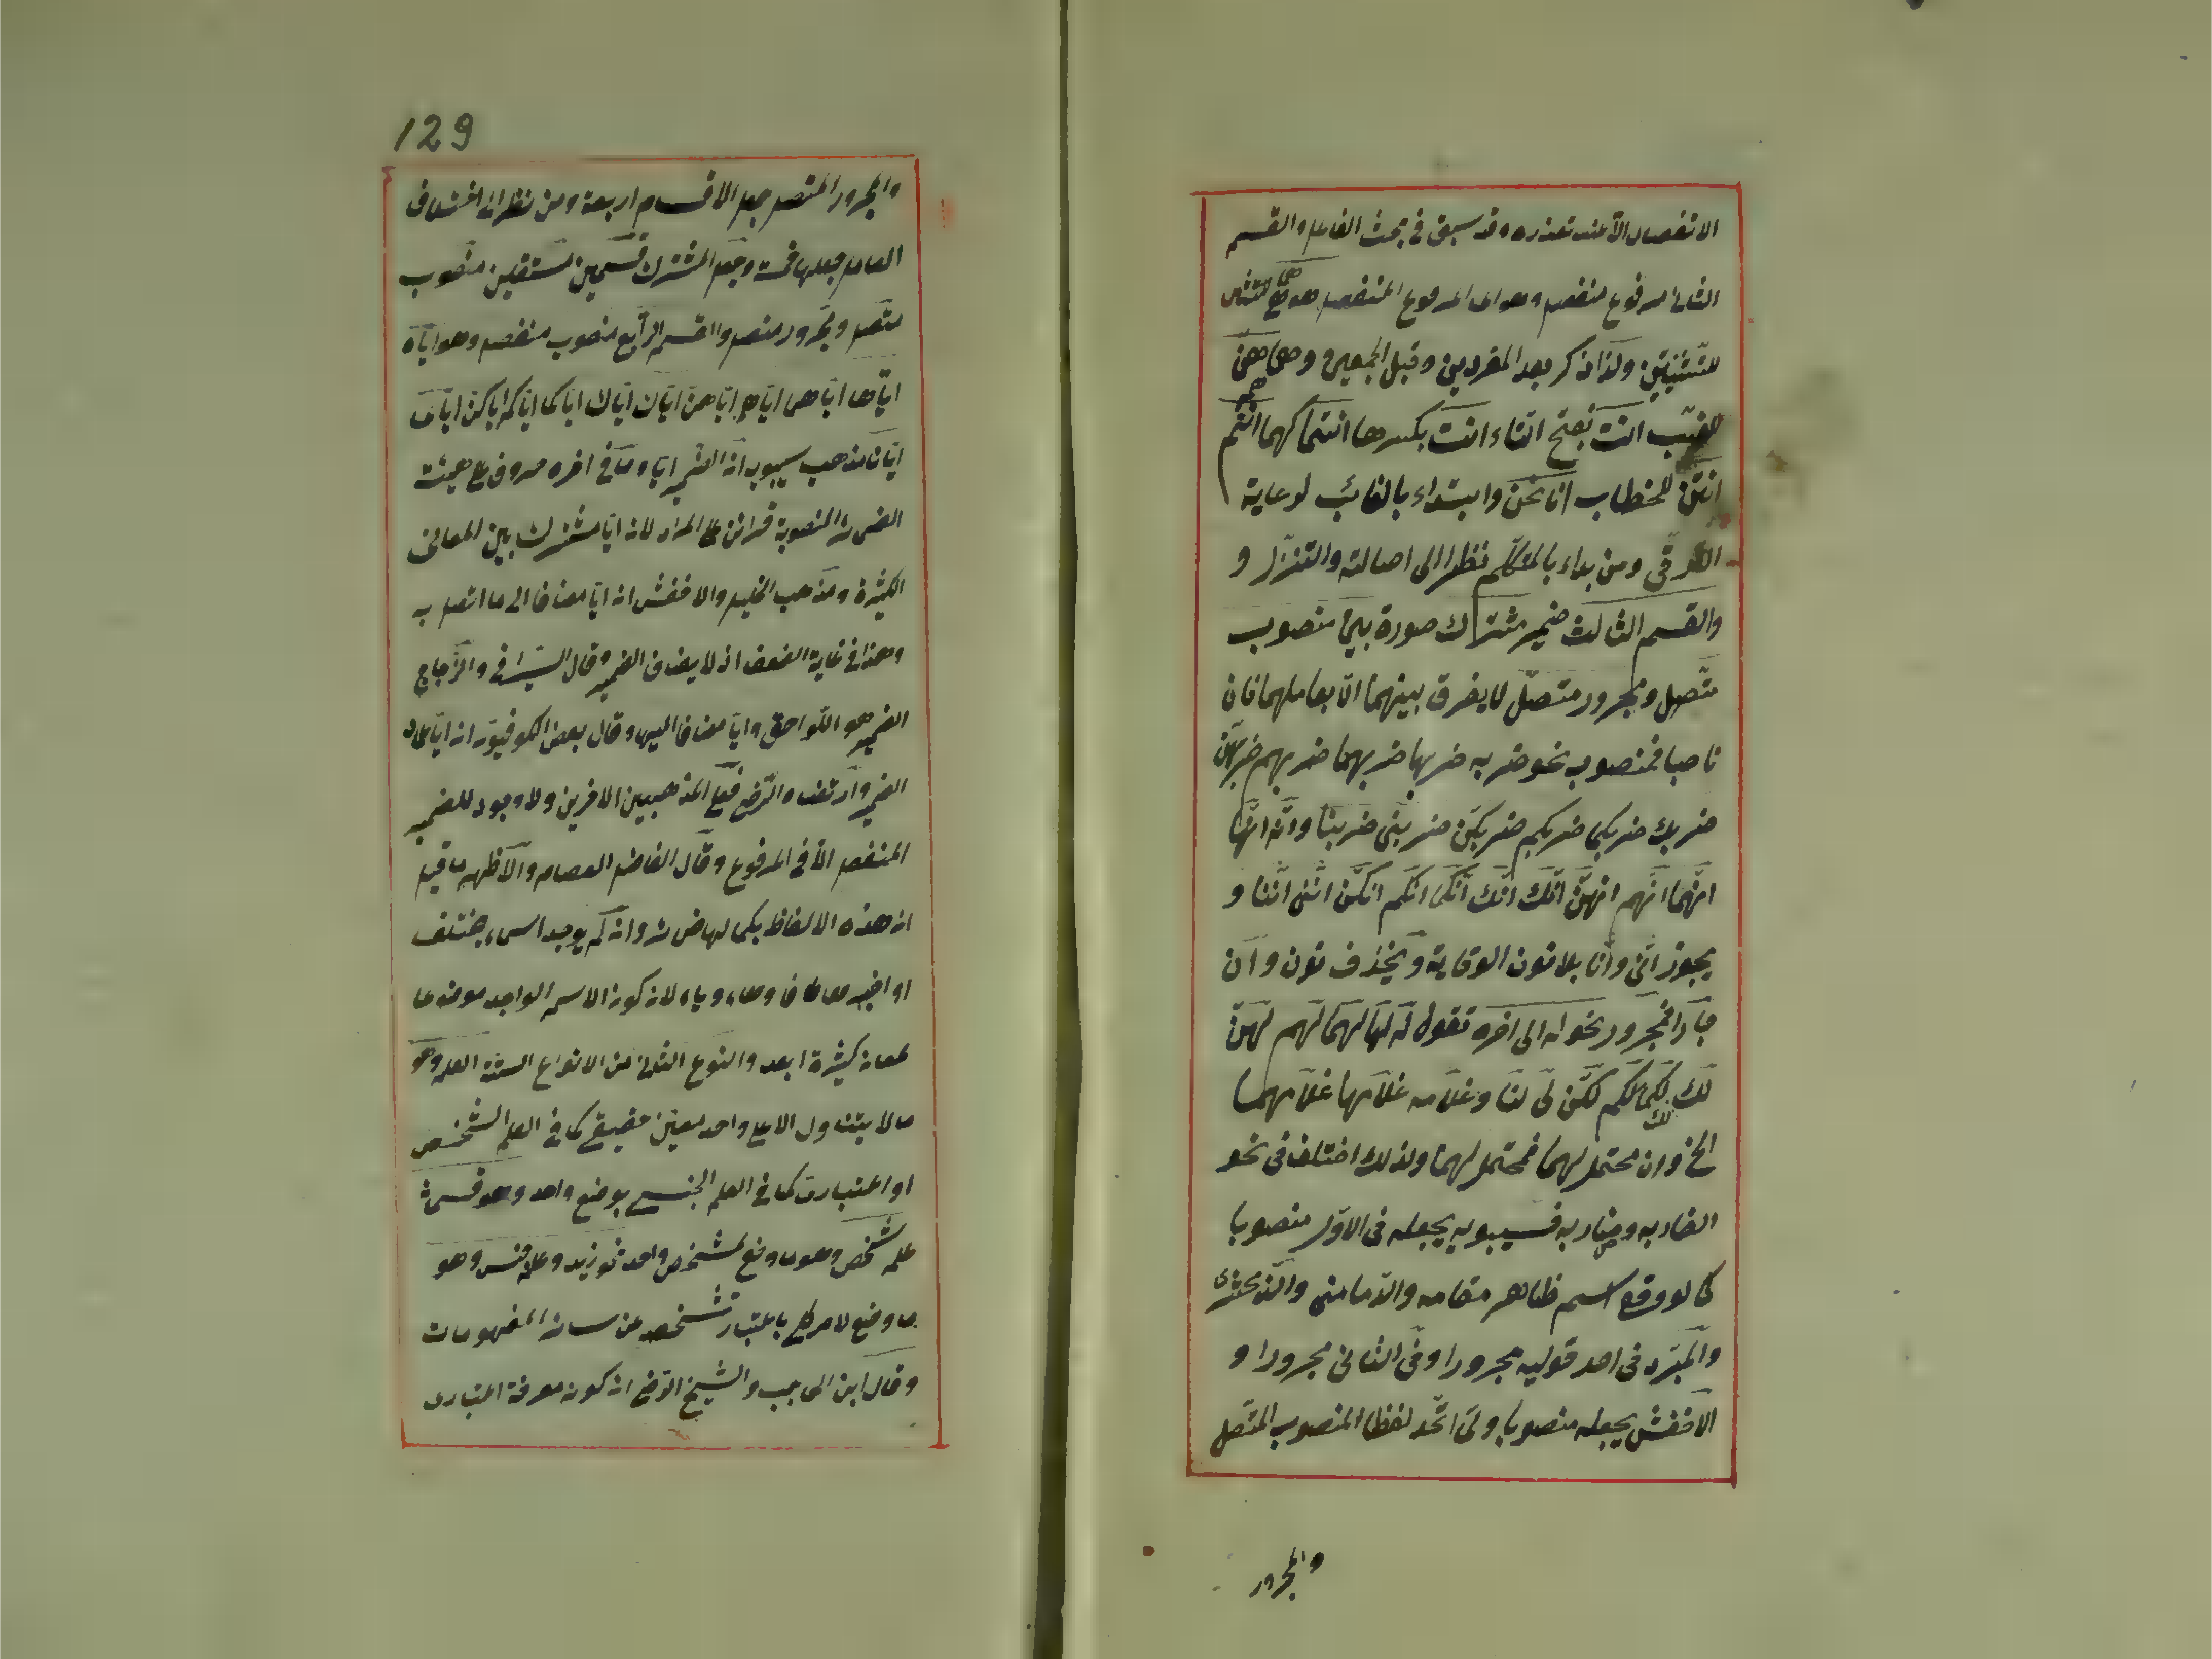 الانفصال الا عند تعذره وقد سبق في بحث الفاعل والقسم
الثانى مرفوع منفصل وهو اى المرفوع المنفصل هو هى هما
للتثنيتين ولذا ذكر بعد المفردين وقبل الجمعين وهى هم هنّ
للغيّب انت بفتح التاء انت بكسرها انتما كهما انتم
انتنّ للخطاب انا نحن وابتداء بالغائب لرعاية
الترقّى ومن بداء بالمتكلّم نظرا الى اصالته والتنزّل و
والقسم الثالث ضمير مشترك صورة بين منصوب
متّصل ومجرور متصّل لا يفرق بينهما الّا بعاملهما فان
ناصبا فمنصوب نحو ضربه ضربها ضربهما ضربهم ضربهنّ
ضربك ضربكما ضربكم ضربكنّ ضربنى ضربنا وانّه انّها
انّهما انّهم انهنّ انّك انّك انّكما انّكم انكنّ انّنى انّنا و
يجوز انّى وانّا بلا نون الوقاية ويحذف نون وان
جارّا فمجرور نحو له الى اخره تقول له لها لهما لهم لهنّ
لك لك لكما لكم لكنّ لى لنا وغلامه غلامها غلامهما
الخ وان محتمل لهما فمحتمل لهما ولذلك اختلف فى نحو
الضاربه وضاربه فسيبويه يجعله فى الاوّل منصوبا
كما لو وقع اسم ظاهر مقامه والدّمامنى والزمحشرى
والمبرّد فى احد قوليه مجرورا وفى الثانى مجرورا و
الاخفش يجعله منصوبا ولى اتّحد لفظا المنصوب المتّصل
والمجرور
129
والمجرور المتصل جعل الاقسام اربعة ومن نظر الى اختلاف
العامل جعلها خمسة وجعل المشترك قسمين مستقلين منصوب
متصل ومجرور متصل والقسم الرابع منصوب منفصل وهو ايّاه
ايّاها ايّاهما ايّاهم ايّاهنّ ايّاك ايّاك ايّاكما ايّاكم ايّاكنّ ايّاى
ايّانا مذهب سيبويه انّ الضمير ايّا وما فى اخره حروف على هيئة
الضمائر المنصوبة قرائن على المراد لان ايّا مشترك بين المعانى
الكثيرة ومذهب الخليل والاخفش ان ايّا مضاف الى ما اتصل به
وهذا فى غاية الضعف اذ لا يضاف الضمير وقال السيرافى والزّجاج
الضمير هو اللّواحق وايّا مضاف اليها وقال بعض الكوفيّون ان ايّا عماد
الضمير وارتضاه الرّضى فعلى المذهبين الاخرين ولا وجود للضمير
المنفصل الّا فى المرفوع وقال الفاضل العصام والاظهر ما قيل
ان هذه الالفاظ بكمالها ضمائر وان لم يوجد اسماء يختلف
او اخره كافا وهاء وياء لان كون الاسم الواحد موضوعا
لمعان كثيرة ابعد والنوع الثانى من الانواع الستة العلم وهو
ما لا يتناول الا على واحد معيّن حقيقى كما فى العلم الشخصى
او اعتبارى كما فى العلم الجنسى بوضع واحد وهو قسمان
علم شخص وهو ما وضع لشخص واحد نحو زيد وعلم جنس وهو
ما وضع لامر كلى باعتبار تشخصه عن سائر المفهومات
وقال ابن الحاجب والشيخ الرّضى ان كونه معرفة اعتبارى